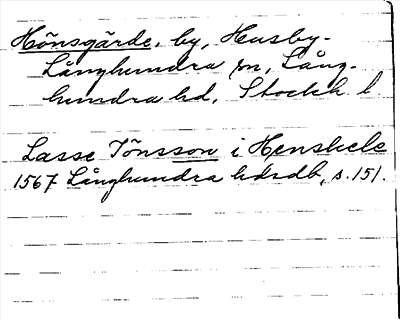 Hönsgärde, by, Husby-
Långhundra sn, Lång-
hundra hd, Stockh. l.
Lasse Jönsson i Henskele
1567 Långhundra hdsdb, s. 151.